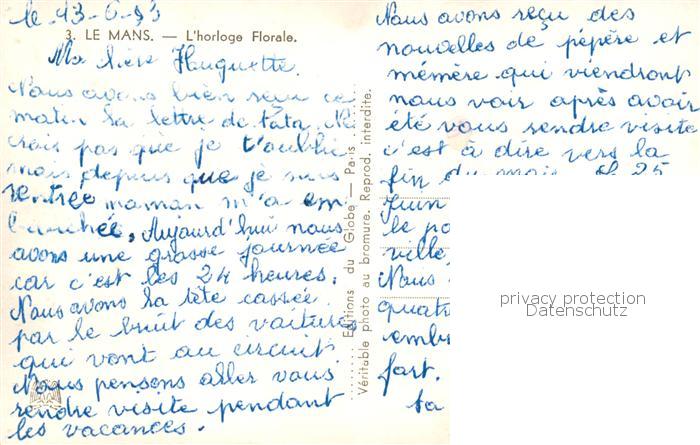 le 13-6-53
3. LE MANS. — L'horloge Florale.
Ma Huguette.
Nous avons bien reçu ce
matin ta lettre de tata. Ne
crois pas que je t'oublie
mais depuis que je suis
rentrée maman m'a em
bauchée. Aujourd'hui nous
avons une grasse journée
car c'est les 24 heures.
Nous avons la tête cassée
par le bruit des voitures
qui vont au circuit.
Nous pensons aller vous
rendre visite pendant
les vacances.
Editions du Globe — Paris
Véritable photo au bromure. Reprod. interdite.
Nous avons reçu des
nouvelles de pépère et
mémère qui viendront
nous voir après avoir
été vous rendre visite
c'est à dire vers la
fin du mois. 25
Juin
le
ville,
Nous
quatr
embr
fort.
ta
privacy protection
Datenschutz